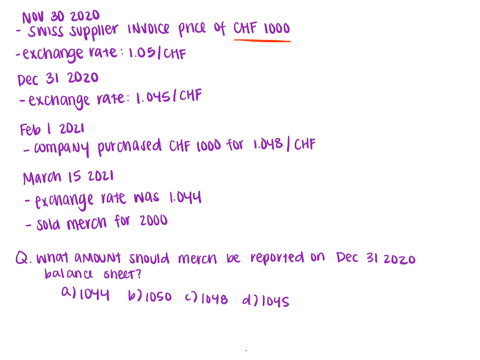 NOV 30 2020
- swiss supplier invoice price of CHF 1000
- exchange rate: 1.05/CHF
Dec 31 2020
- exchange rate: 1.045/CHF
Feb 1 2021
- company purchased CHF 1000 for 1.048/CHF
March 15 2021
- exchange rate was 1.044
- sold merch for 2000
Q. what amount should merch be reported on Dec 31 2020
balance sheet?
a) 1044 b) 1050 c) 1048 d) 1045